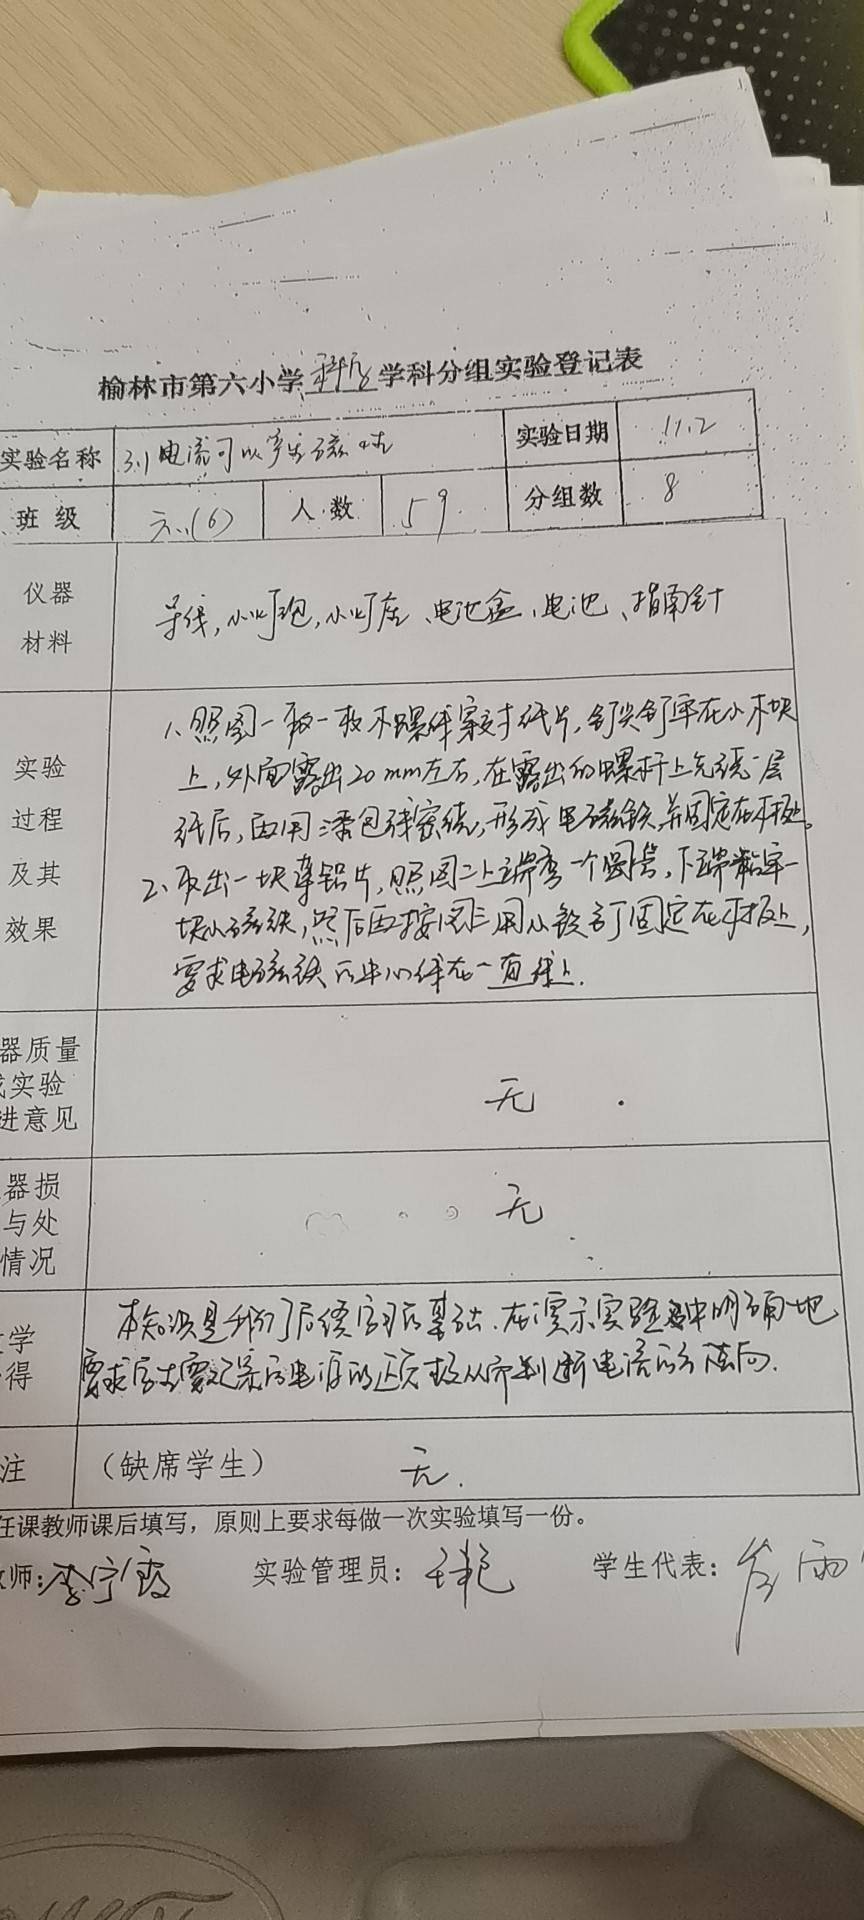 榆林市第六小学科学学科分组实验登记表
实验名称 3.1电流可以产生磁性 实验日期 11.2
班级 六.(6) 人数 59 分组数 8
仪器
材料
导线,小灯泡,小灯座、电池盒、电池、指南针
实验
过程
及其
效果
1、照图一取一枚木螺丝穿过纸片,钉尖钉牢在小木块
上,外面露出20mm左右,在露出的螺杆上先绕一层
纸后,再用漆包线密绕,形成电磁铁,并固定在木板。
2、取出一块薄铝片,照图二上端弯一个圆筒,下端粘牢一
块小磁铁,然后再按图三用小铁钉固定在木板上,
要求电磁铁的中心线在一直线上.
器质量
实验
进意见
无
器损
与处
情况
无
学
得
本知识是我们后续学习的基础.在演示实验中明确地
要求学生要记录的电源的正负极从而判断电流的方向.
注 (缺席学生) 无.
任课教师课后填写，原则上要求每做一次实验填写一份。
师: 实验管理员: 学生代表: 雨